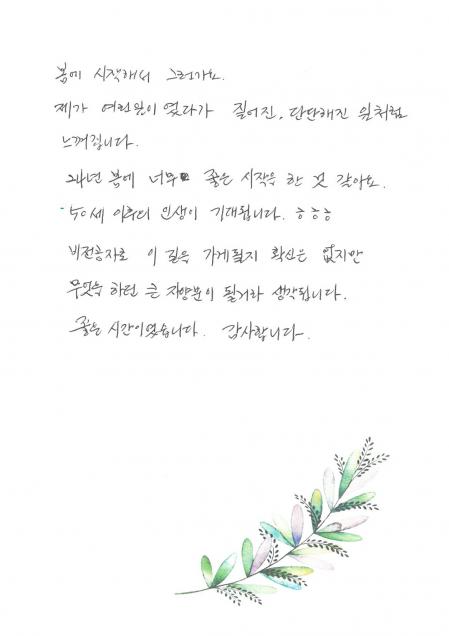 봄에 시작해서 그런가요.
제가 여린잎이었다가 짙어진, 단단해진 잎처럼
느껴집니다.
24년 봄에 너무 좋은 시작을 한 것 같아요.
50세 이후의 인생이 기대됩니다. ㅎㅎㅎ
비전공자로 이 길을 가게될지 확신은 없지만
무엇을 하던 큰 자양분이 될거라 생각됩니다.
좋은 시간이었습니다. 감사합니다.